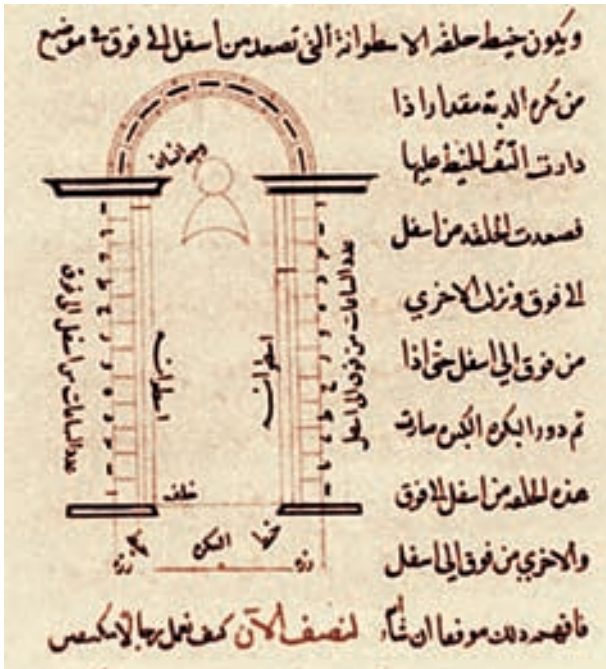 ويكون خيط حلقه الاسطوانة التى تصعد من أسفل الى فوق فى موضع
من بكره الدبة مقدار اذا
دارت التف الخيط عليها
فصعدت الحلقه من اسفل
الى فوق ونزلت الاخري
من فوق الى اسفل حتى اذا
تم دور البكره الكبرى صارت
هذه الحلقه من اسفل الى فوق
والاخري من فوق الى اسفل
فافهم ذلك موفقا ان شاء لنصف الآن كيف نعمل برجا لا ينتكس
عدد الساعات من فوق الى اسفل
اسطوانه
اسطوانه
عدد الساعات من اسفل الى فوق
خلف
خط
رزه
رزه